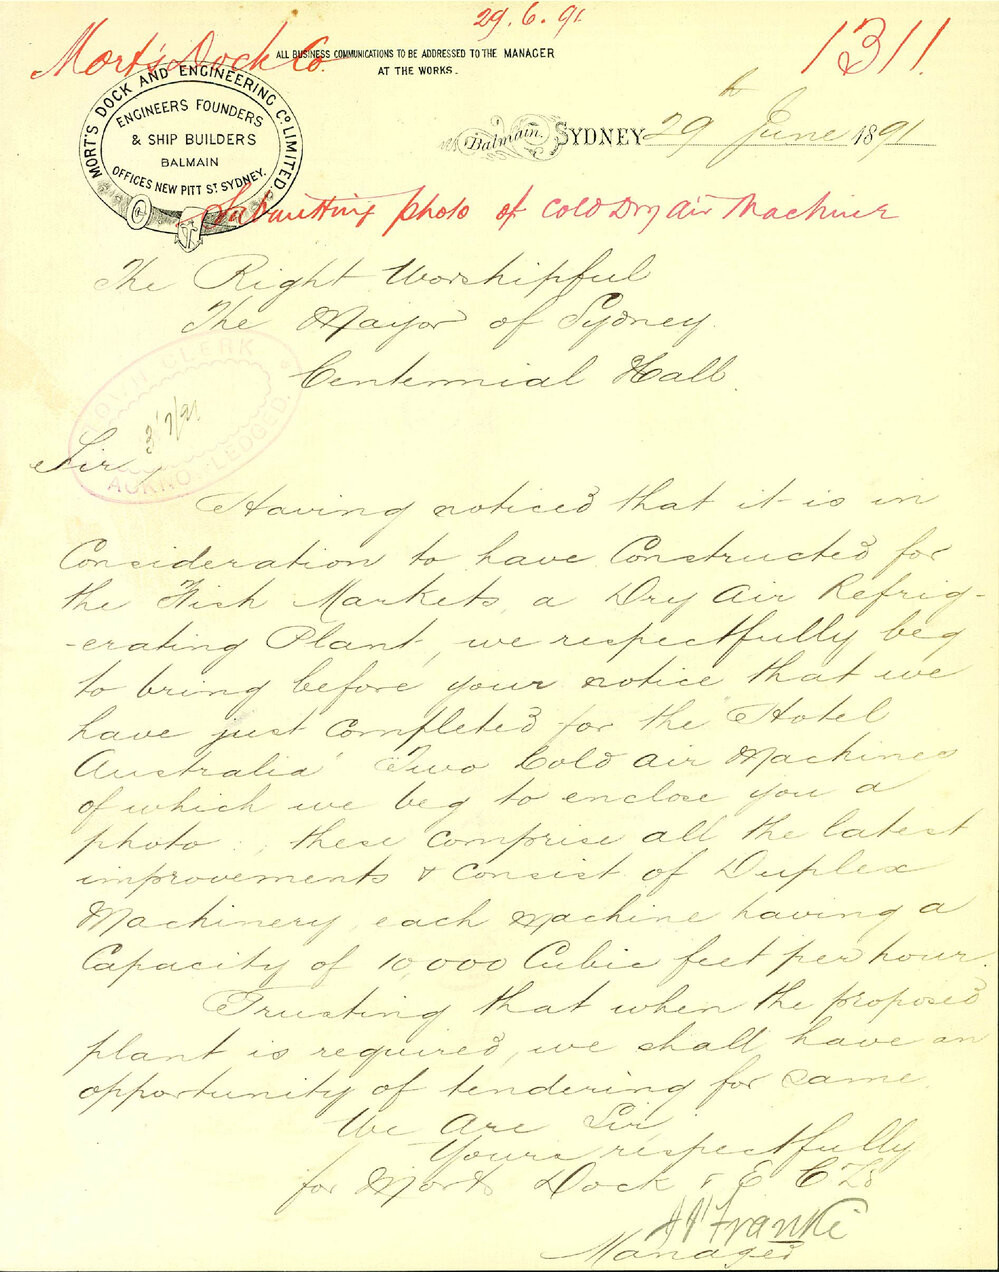 29.6.91
Mort's Dock Co.
1311.
ALL BUSINESS COMMUNICATIONS TO BE ADDRESSED TO THE MANAGER
AT THE WORKS.
MORT'S DOCK AND ENGINEERING CO. LIMITED.
ENGINEERS FOUNDERS
& SHIP BUILDERS
BALMAIN
OFFICES NEW PITT ST. SYDNEY.
Balmain. SYDNEY 29th June 1891
Submitting photo of Cold Dry Air Machine
The Right Worshipful
The Mayor of Sydney.
Centennial Hall.
TOWN CLERK
3/7/91
ACKNOWLEDGED.
Sir,
Having noticed that it is in
Consideration to have Constructed for
the Fish Markets, a Dry Air Refrig-
-erating Plant, we respectfully beg
to bring before your notice that we
have just Completed for the "Hotel
Australia" Two Cold air Machines
of which we beg to enclose you a
photo:, these comprise all the latest
improvements & consist of Duplex
Machinery, each machine having a
Capacity of 10,000 Cubic feet per hour.
Trusting that when the proposed
plant is required, we shall have an
opportunity of tendering for same.
We Are Sir
Yours respectfully
for Morts Dock & E C Ld
Franki
Manager